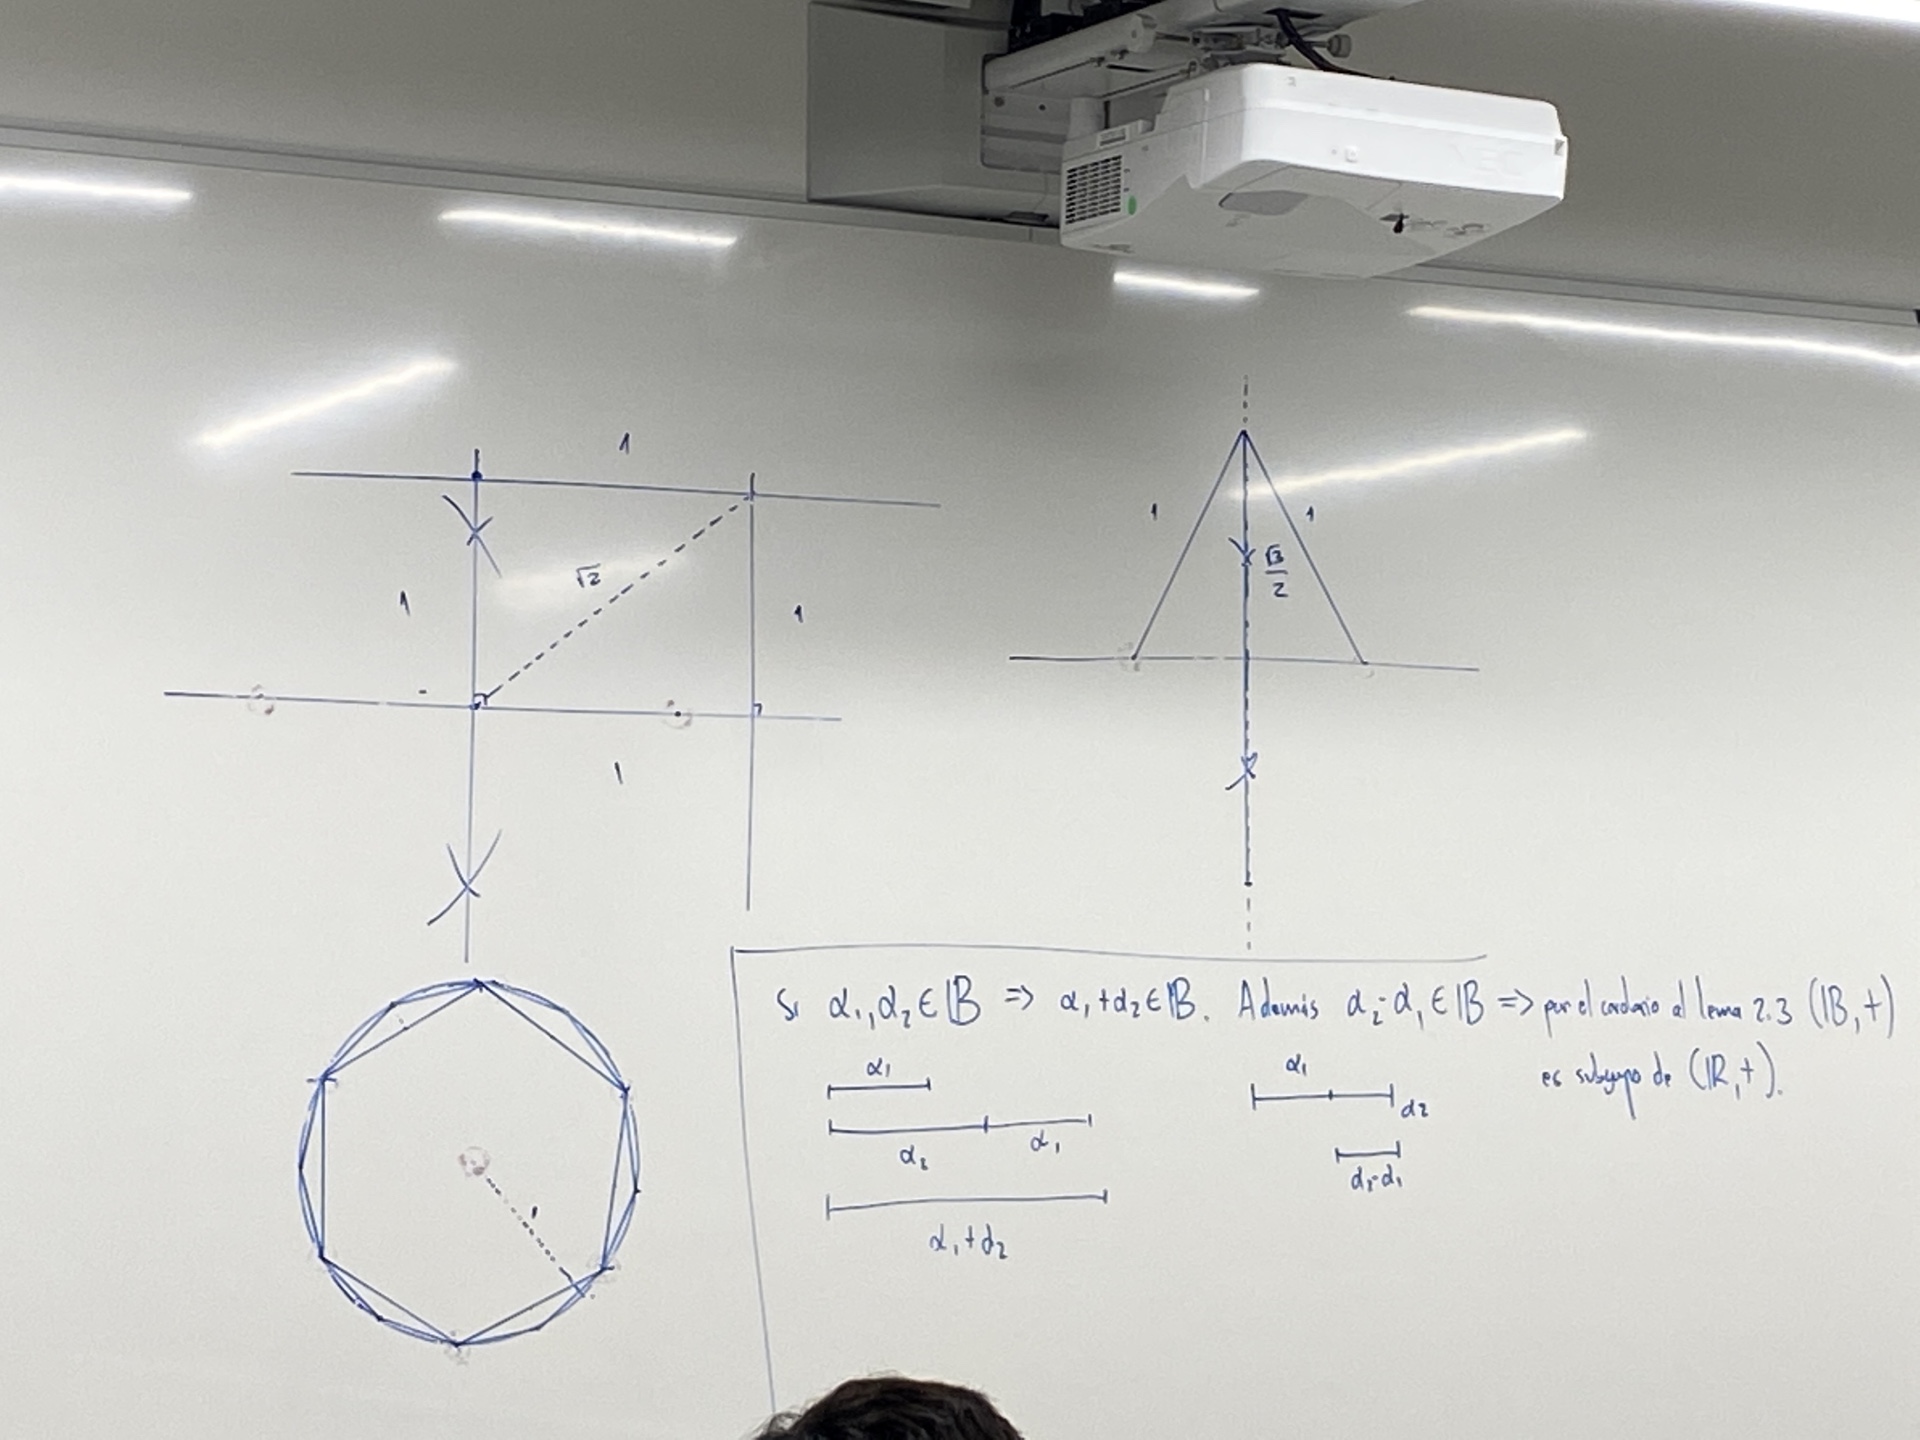 1
1
√2
1
1
1
1
√3/2
Si α₁,α₂ ∈ 𝔹 => α₁+α₂ ∈ 𝔹. Además α₂-α₁ ∈ 𝔹 => por el corolario al lema 2.3 (𝔹,+)
es subgrupo de (ℝ,+).
α₁
α₂ α₁
α₁+α₂
α₁
α₂
α₂-α₁
1